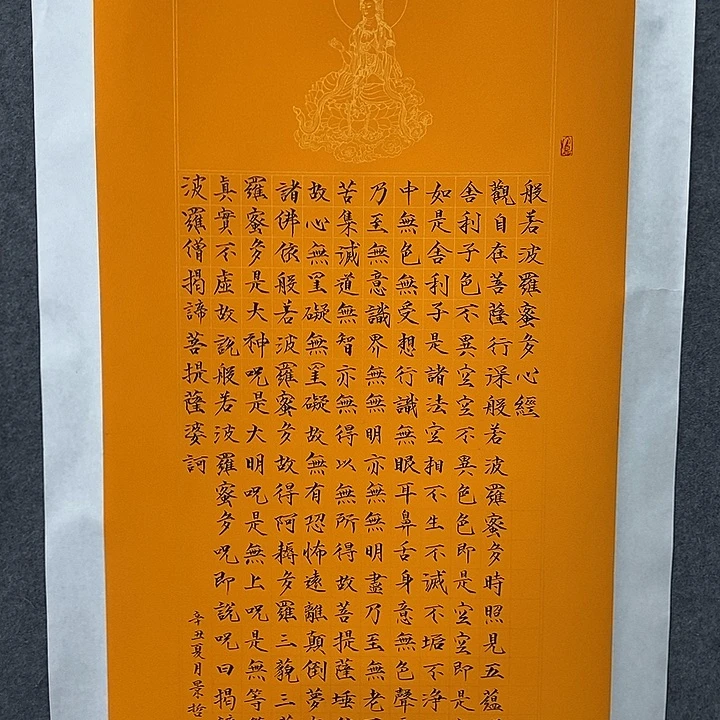 般若波羅蜜多心經
觀自在菩薩行深般若波羅蜜多時照見五蘊
舍利子色不異空空不異色色即是空空即是
如是舍利子是諸法空相不生不滅不垢不淨
中無色無受想行識無眼耳鼻舌身意無色聲
乃至無意識界無無明亦無無明盡乃至無老
苦集滅道無智亦無得以無所得故菩提薩埵
故心無罣礙無罣礙故無有恐怖遠離顛倒夢
諸佛依般若波羅蜜多故得阿耨多羅三藐三
羅蜜多是大神呪是大明呪是無上呪是無等
真實不虛故說般若波羅蜜多呪即說呪曰揭
波羅僧揭諦菩提薩婆訶
辛丑夏月景哲